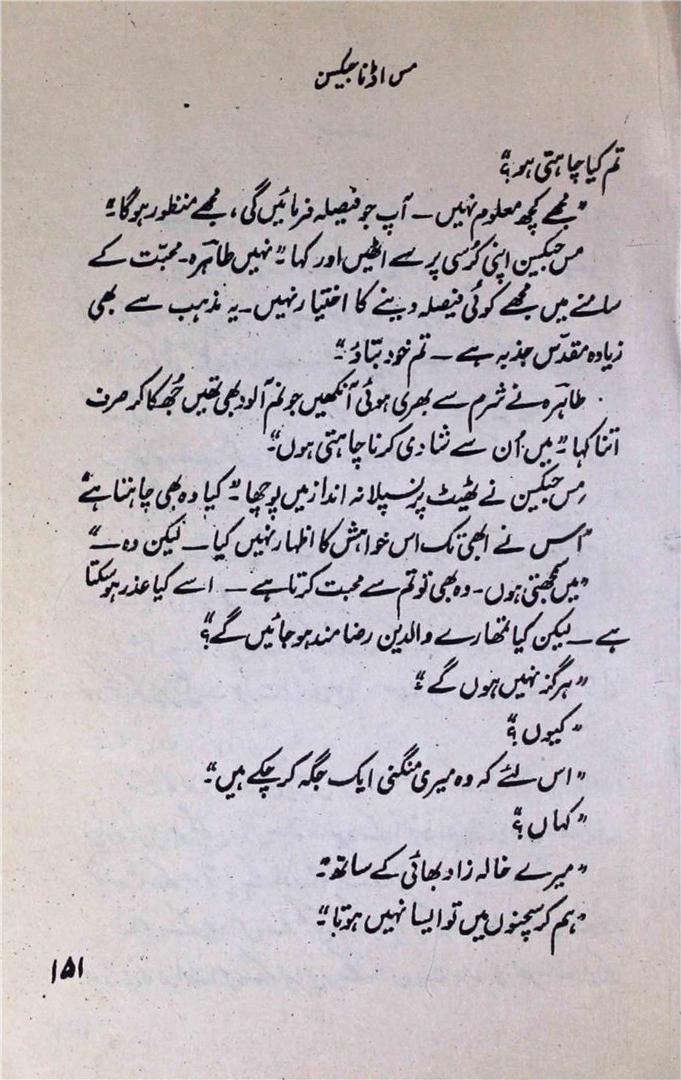 مس اڈنا جیکسن
تم کیا چاہتی ہو؟“
”مجھے کچھ معلوم نہیں ــ آپ جو فیصلہ فرمائیں گی، مجھے منظور ہوگا۔“
مس جیکسن اپنی کُرسی پر سے اٹھیں اور کہا۔ ”نہیں طاہرہ۔ محبّت کے
سامنے میں مجھے کوئی فیصلہ دینے کا اختیار نہیں۔ یہ مذہب سے بھی
زیادہ مقدّس جذبہ ہے ــ تم خود بتاؤ۔“
طاہرہ نے شرم سے بھری ہوئی آنکھیں جو نم آلود بھی تھیں جُھکا کر صرف
اتنا کہا۔ ”میں اُن سے شادی کرنا چاہتی ہوں۔“
مِس جیکسن نے ٹھیٹ پرنسپلانہ انداز میں پوچھا۔ ”کیا وہ بھی چاہتا ہے“
”اُس نے ابھی تک اس خواہش کا اظہار نہیں کیا ــ لیکن وہ ــ“
”میں سمجھتی ہوں۔ وہ بھی تو تم سے محبت کرتا ہے ــ اسے کیا عذر ہوسکتا
ہے ــ لیکن کیا تمھارے والدین رضا مند ہو جائیں گے؟“
”ہرگز نہیں ہوں گے۔“
”کیوں؟“
”اس لئے کہ وہ میری منگنی ایک جگہ کر چکے ہیں۔“
”کہاں؟“
”میرے خالہ زاد بھائی کے ساتھ۔“
”ہم کرسچنوں میں تو ایسا نہیں ہوتا۔“
۱۵۱